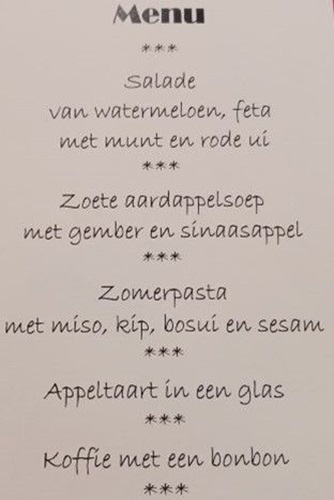 Menu
***
Salade
van watermeloen, feta
met munt en rode ui
***
Zoete aardappelsoep
met gember en sinaasappel
***
Zomerpasta
met miso, kip, bosui en sesam
***
Appeltaart in een glas
***
Koffie met een bonbon
***